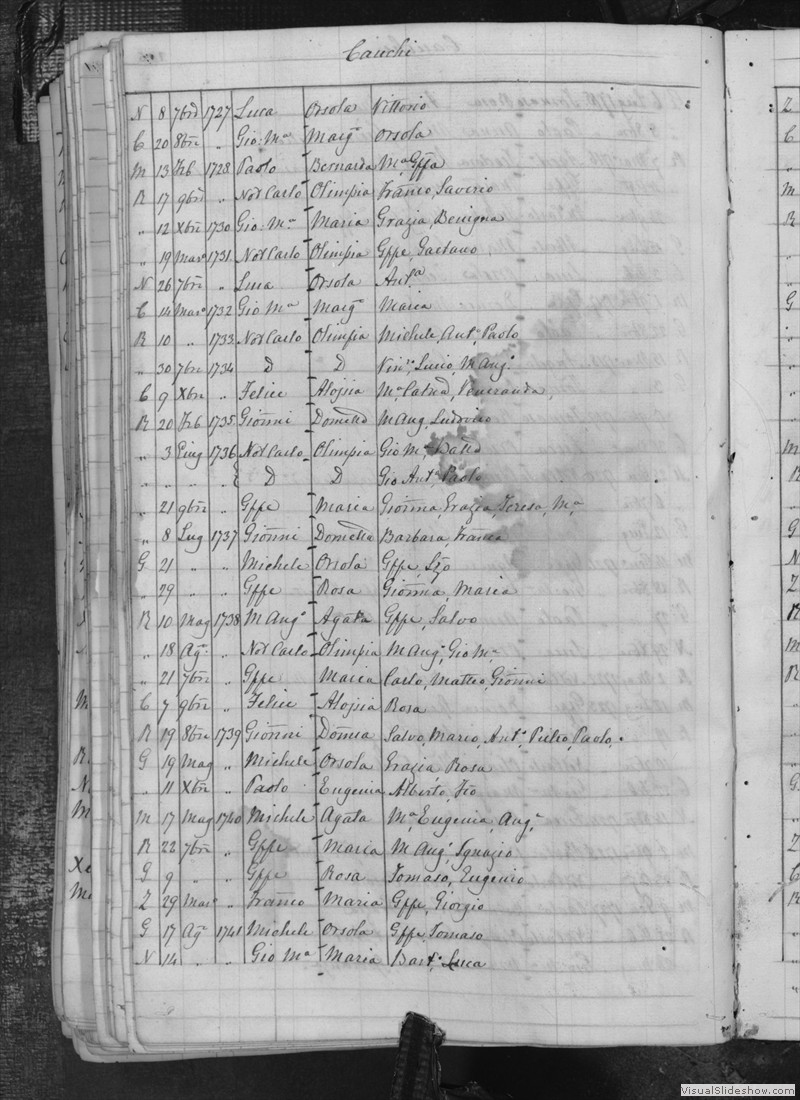 Cauchi
N 8 7bre 1727 Luca Orsola Vittorio
C 20 8bre " Gio: Mª Margª Orsola
M 13 Feb 1728 Paolo Bernarda Mª Gffa
R 17 9bre " Not Carlo Olimpia Franco, Saverio
" 12 Xbre 1730 Gio: Mª Maria Grazia, Benigna
" 19 Marº 1731 Not Carlo Olimpia Gffe, Gaetano
N 26 7bre " Luca Orsola Antª
C 14 Marº 1732 Gio Mª Margª Maria
R 10 " 1733 Not Carlo Olimpia Michele, Antº Paolo
" 30 7bre 1734 D D Vinº, Lucio, M Angº
C 9 Xbre " Felice Alojsia Mª Catna, Veneranda,
R 20 Feb 1735 Gionni Domca M Ang, Ludvico
" 3 Giug 1736 Not Carlo Olimpia Gio Mª
" " " " D D Gio Antº Paolo
" 21 9bre " Gffe Maria Gionna, Grazia, Teresa, Mª
" 8 Lug 1737 Gionni Domca Barbara, Franca
G 21 " " Michele Orsola Gffe, Lzo
" 29 " " Gffe Rosa Gionna, Maria
R 10 Mag 1738 M Angº Agata Gffe, Salvo
" 18 Agº " Not Carlo Olimpia M Angº, Gio Mª
" 21 7bre " Gffe Maria Carlo, Matteo, Gionni
C 7 9bre " Felice Alojsia Rosa
R 19 8bre 1739 Gionni Domca Salvo, Mario, Antº, Pietro, Paolo,
G 19 Mag " Michele Orsola Grazia Rosa
" 11 Xbre " Paolo Eugenia Alberto, Fco
M 17 Mag 1740 Michele Agata Mª, Eugenia, Angª
R 22 7bre " Gffe Maria M Angº, Ignazio
G 9 " " Gffe Rosa Tomaso, Eugenio
Z 29 Marº " Franco Maria Gffe, Giorgio
G 17 Agº 1741 Michele Orsola Gffe, Tomaso
N 14 " " Gio Mª Maria Bartº, Luca
VisualSlideshow.com